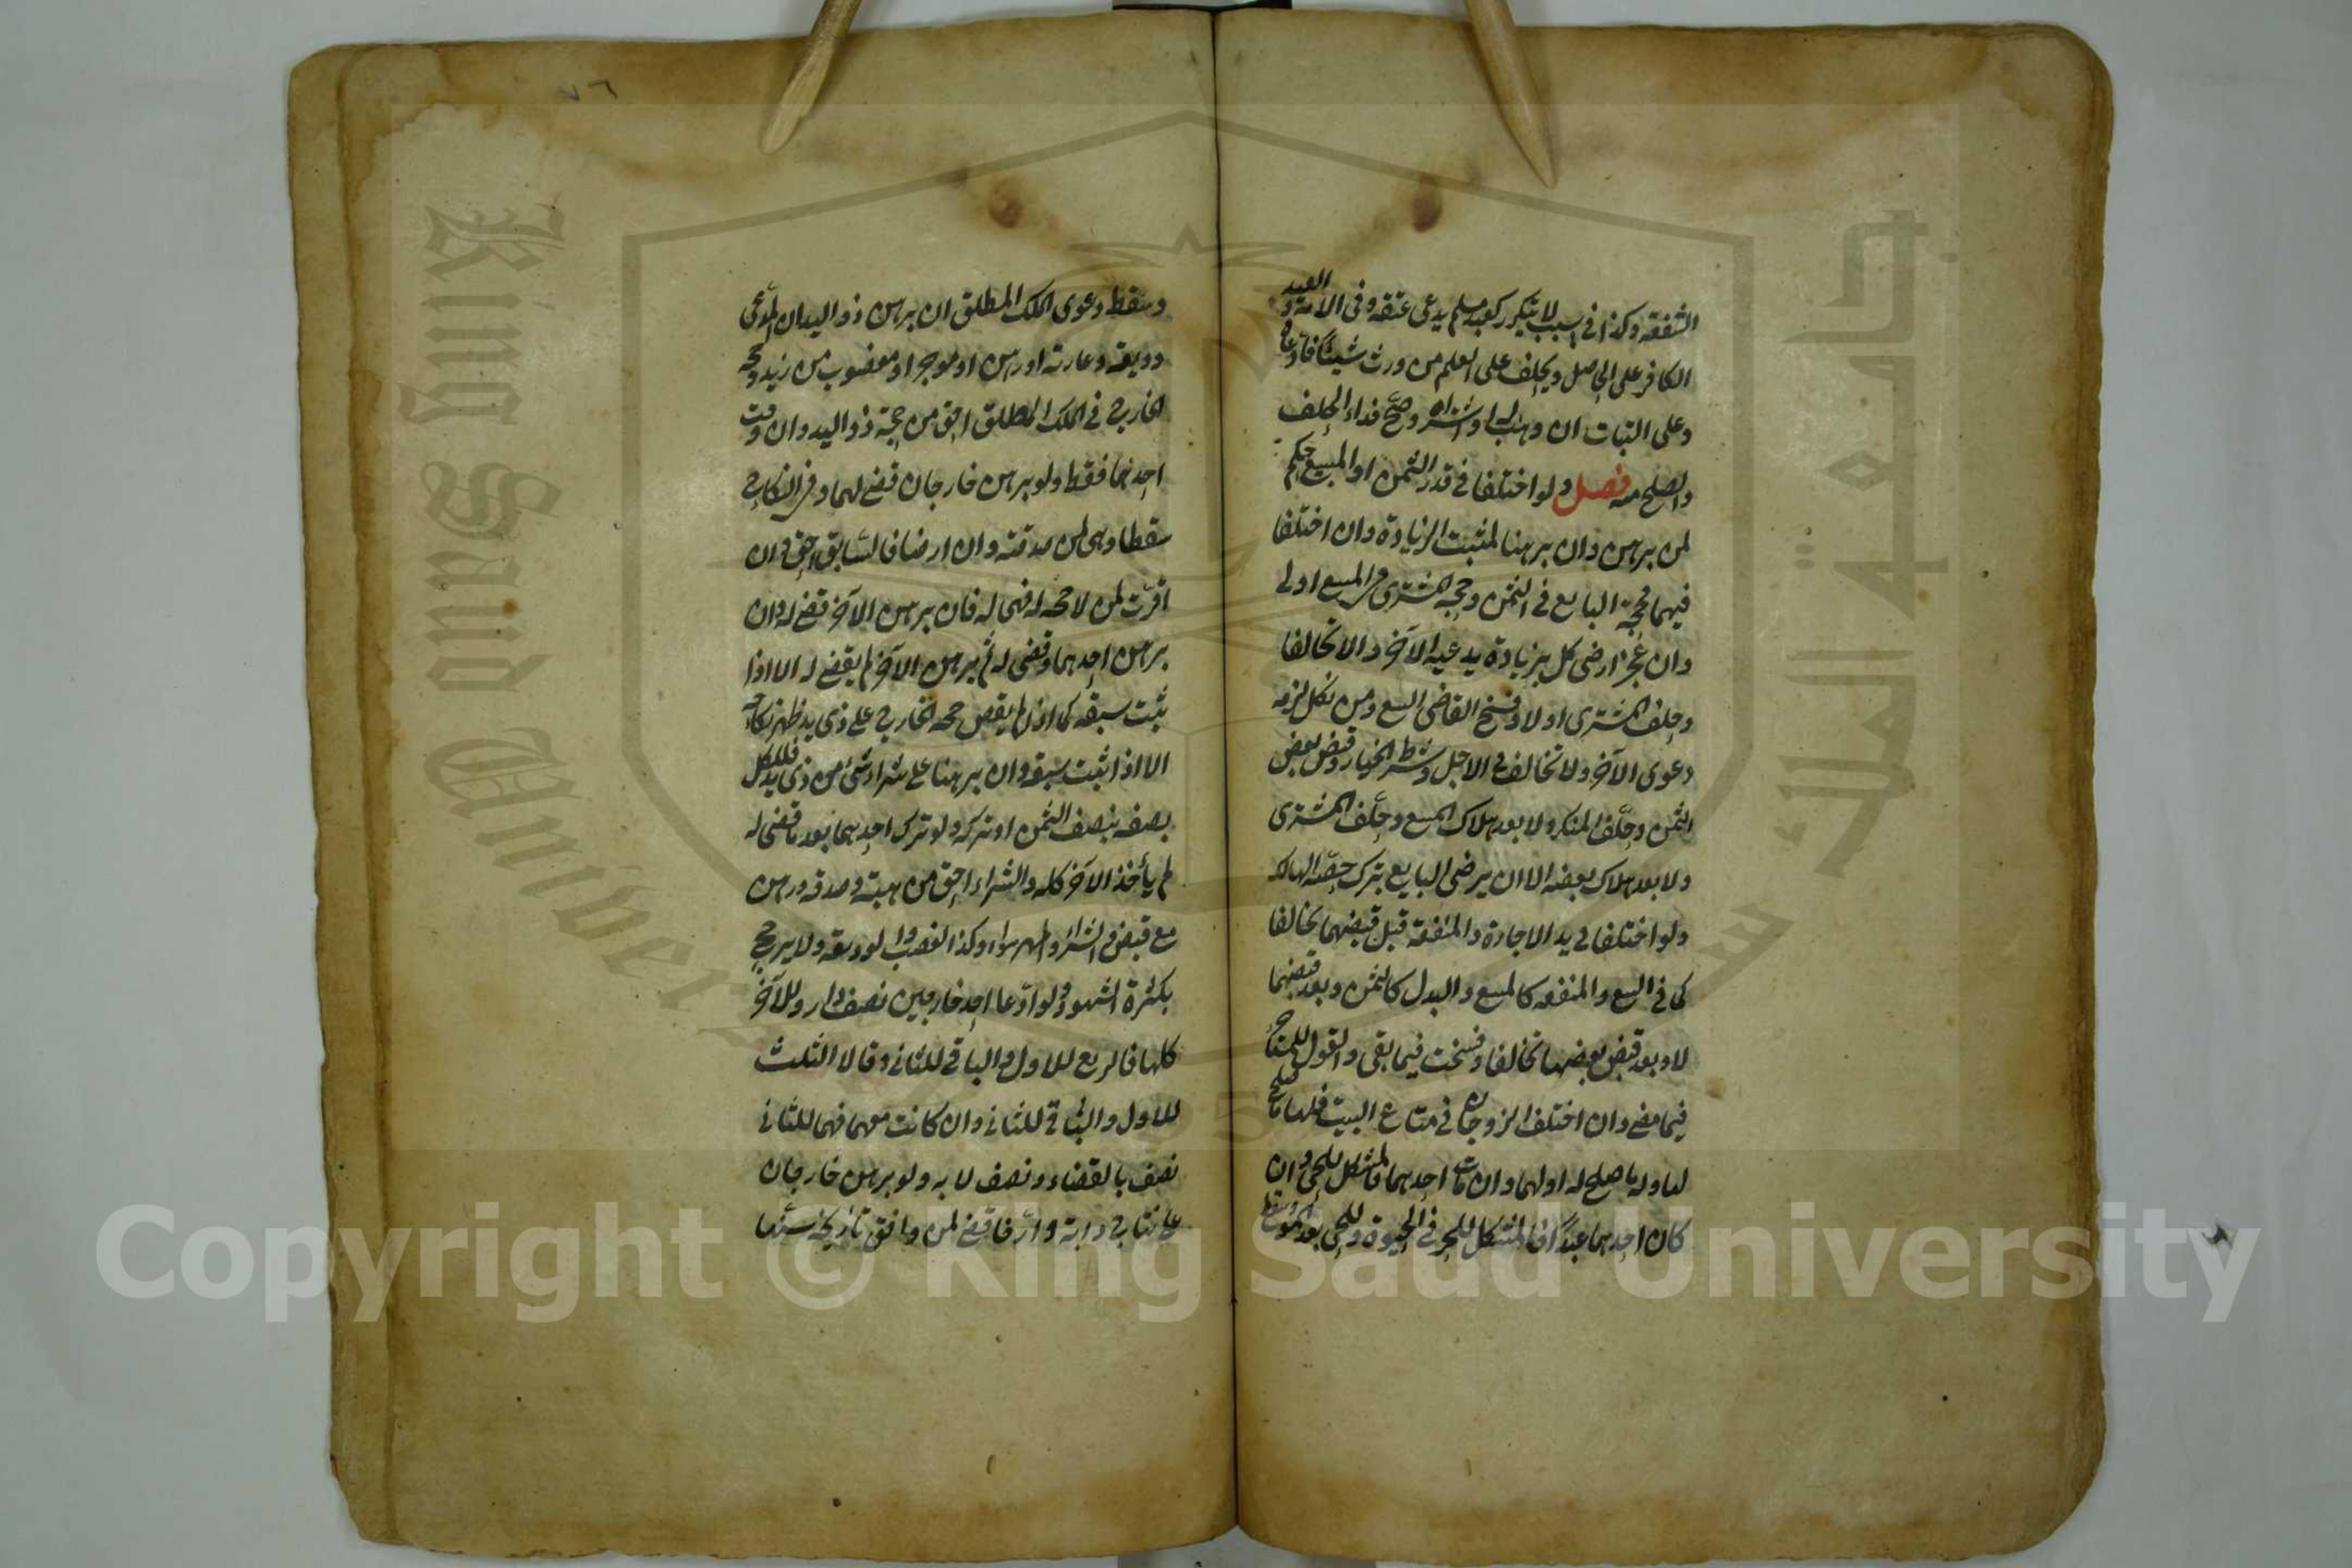 الشفعة وكذا في سبب لا يتكرر كعبد مسلم يدعى عتقه وفى الامة و العبد
الكافر على الحاصل ويحلف على العلم من ورث شيئا فادعاه
وعلى البتات ان وهب له او اشتراه وصح فداء الحلف
والصلح منه فصل ولو اختلفا في قدر الثمن او المبيع حكم
لمن برهن وان برهنا لمثبت الزيادة وان اختلفا
فيهما فحجة البايع في الثمن وحجة المشترى في المبيع اولى
وان عجزا رضى كل بزيادة يدعيه الآخر والا تحالفا
وحلف المشترى اولا وفسخ القاضى البيع ومن نكل لزمه
دعوى الآخر ولا تحالف في الاجل وشرط الخيار وقبض بعض
الثمن وحلف المنكر ولا بعد هلاك المبيع وحلف المشترى
ولا بعد هلاك بعضه الا ان يرضى البايع بترك حصة الهالك
ولو اختلفا في بدل الاجارة والمنفعة قبل قبضهما تحالفا
كما في البيع والمنفعه كالمبيع والبدل كالثمن وبعد قبضهما
لا وبعد قبض بعضها تحالفا وفسخت فيما بقى والقول للمستأجر
فيما مضى وان اختلف الزوجان في متاع البيت فلها ما صلح
لها وله ما صلح له او لهما وان مات احدهما فالمشكل للحى وان
كان احدهما عبدا فالمشكل للحر في الحيوة وللحى بعد الموت
وسقط دعوى الملك المطلق ان برهن ذو اليد ان المدعى
وديعة وعارية او رهن او موجر او مغصوب من زيد وحجة
الخارج في الملك المطلق احق من حجة ذو اليد وان وقت
احدهما فقط ولو برهن خارجان قضى لهما وفي النكاح
سقطا وهى لمن صدقته وان ارخا فالسابق احق وان
اقرت لمن لا حجة له فهى له فان برهن الآخر قضى له وان
برهن احدهما وقضى له ثم برهن الآخر لم يقض له الا اذا
ثبت سبقه كما اذا لم يقض حجة الخارج على ذى يد ظهر نكاحه
الا اذا ثبت سبقه وان برهنا على شراء شئ من ذى يد فلكل
نصفه بنصف الثمن او تركه ولو ترك احدهما بعد ما قضى له
لم يأخذ الآخر كله والشراء احق من هبة وصدقة ورهن
مع قبض والشراء والمهر سواء وكذا الغصب والوديعة ولا يرجح
بكثرة الشهود ولو ادعا احد خارجين نصف دار وللآخر
كلها فالربع للاول والباقى للثانى وقالا الثلث
للاول والباقى للثانى وان كانت معهما فهى للثانى
نصف بالقضاء ونصف لا به ولو برهن خارجان
على نتاج دابة وارخا قضى لمن وافق تاريخه سنها